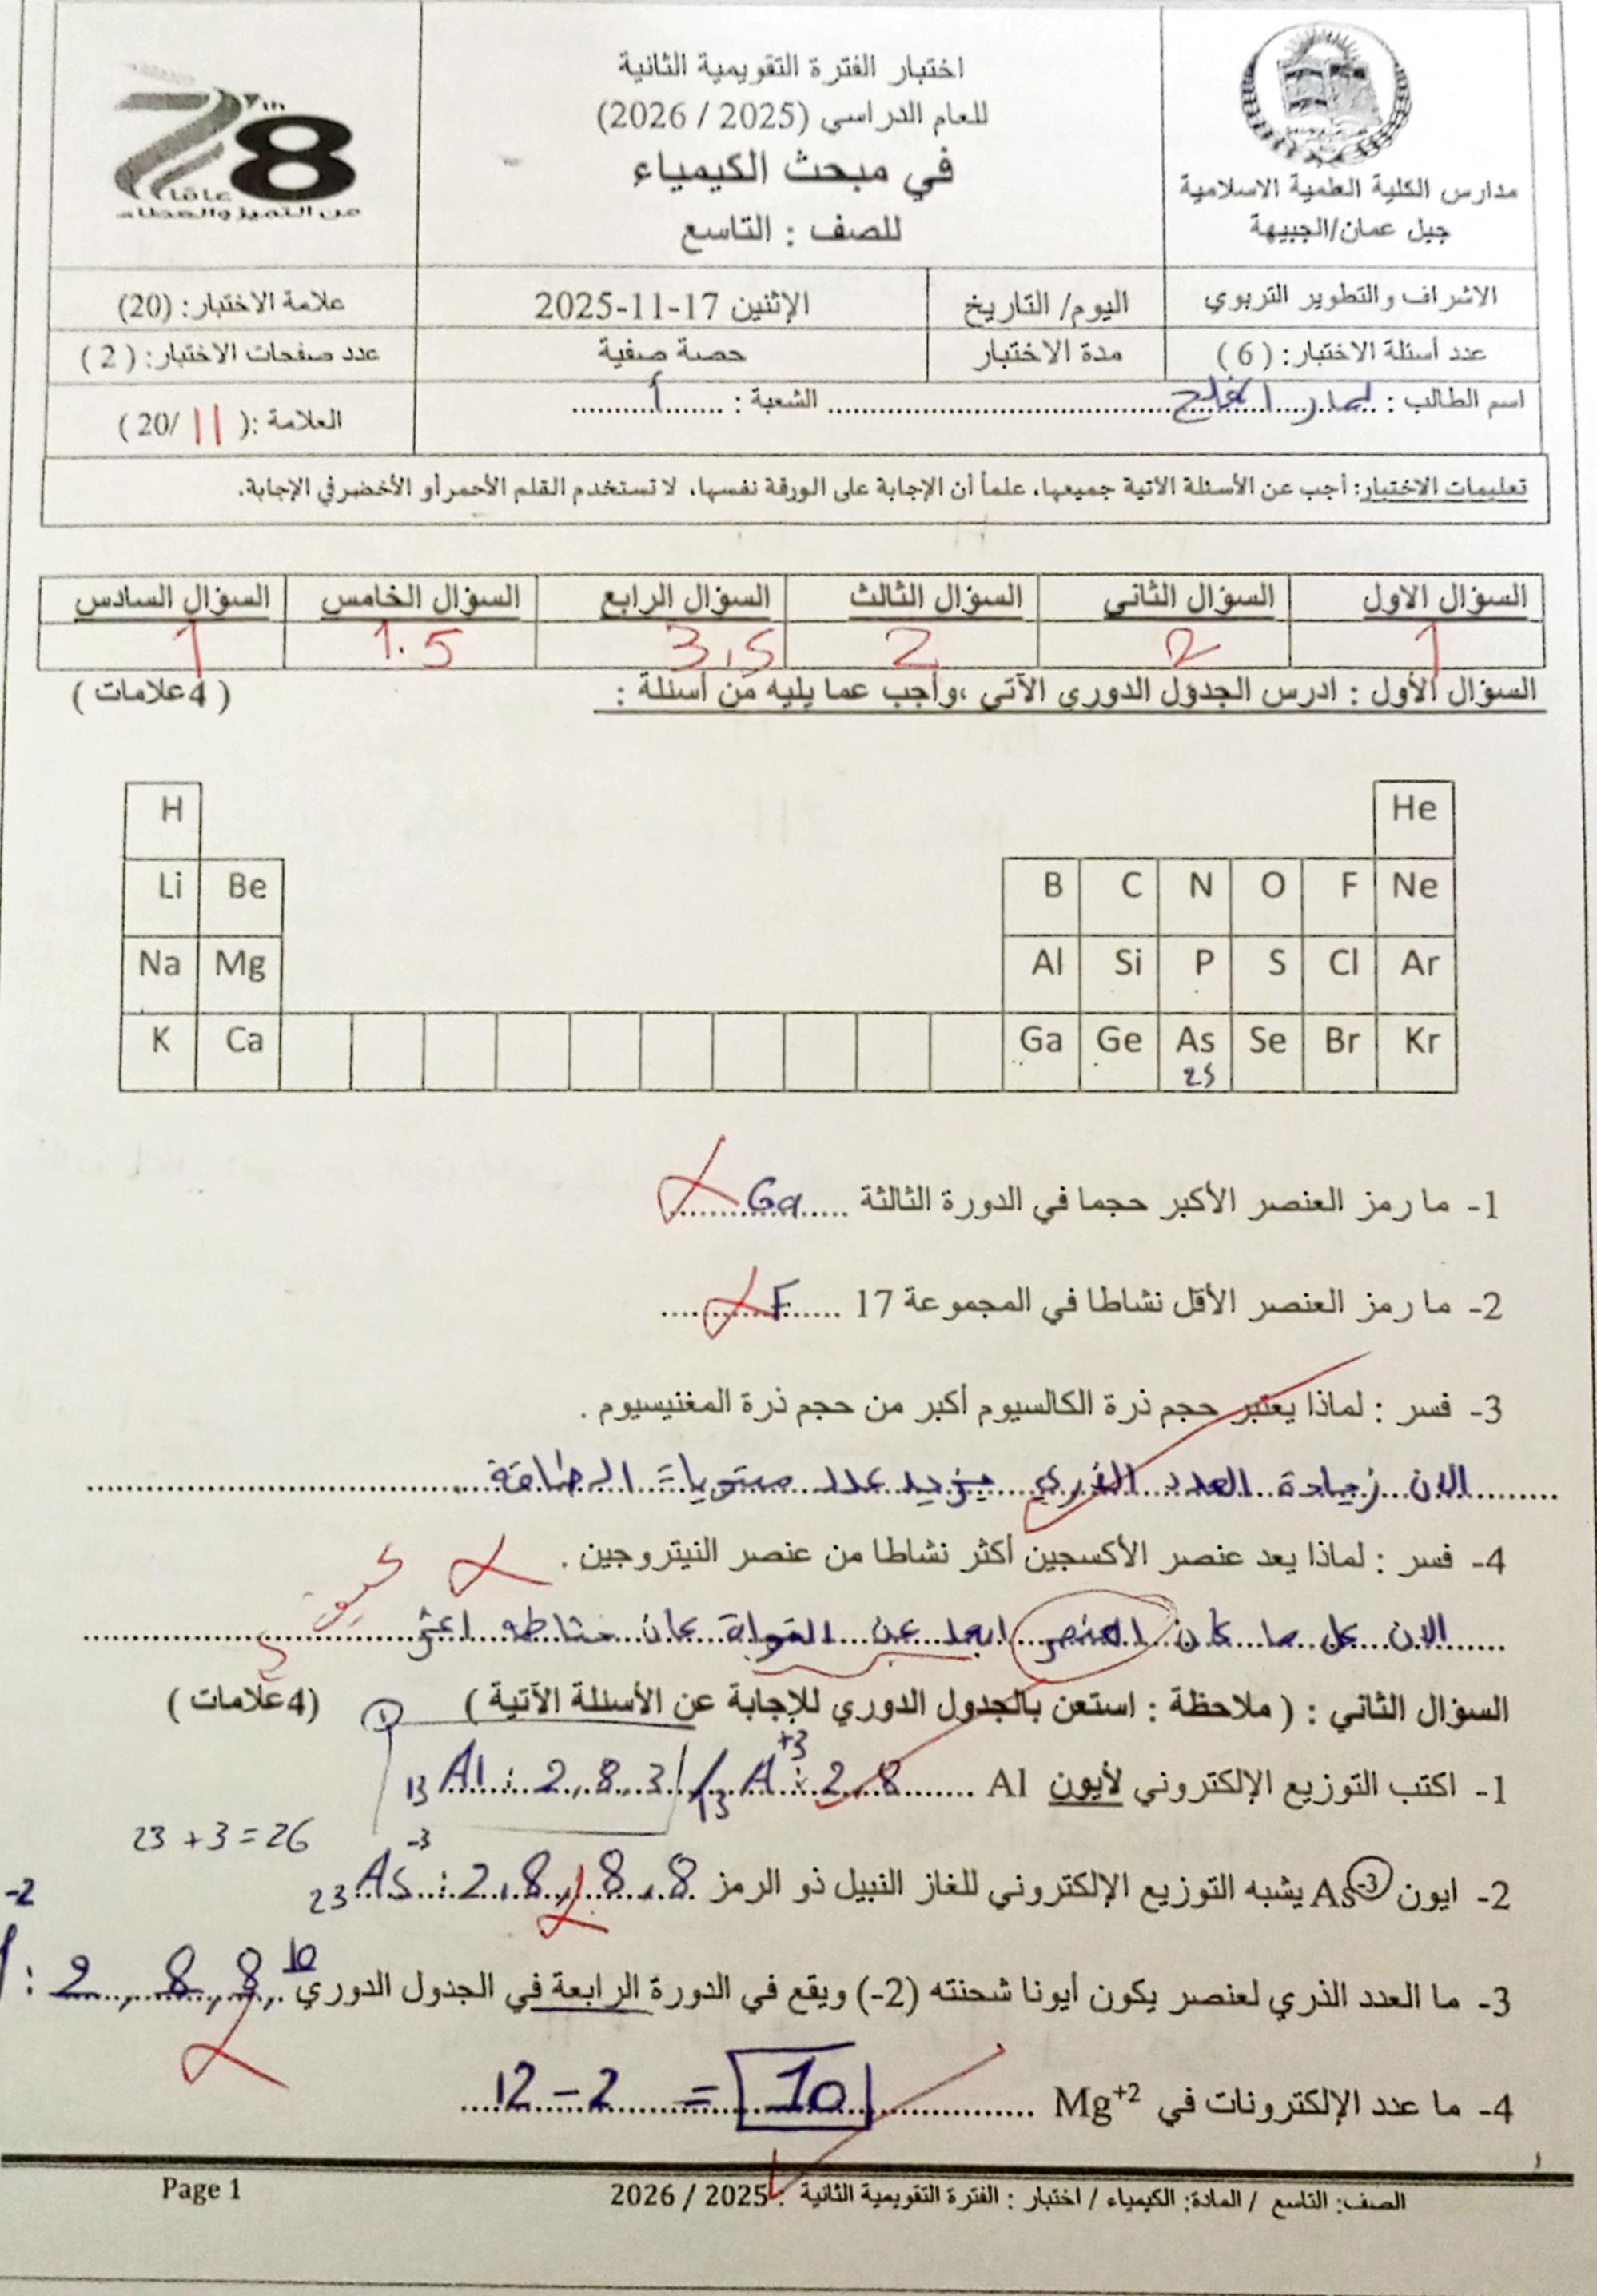 اختبار الفترة التقويمية الثانية
للعام الدراسي (2025 / 2026)
في مبحث الكيمياء
للصف : التاسع
مدارس الكلية العلمية الاسلامية
جبل عمان/الجبيهة
78 th
عاما
من التميز والعطاء
الاشراف والتطوير التربوي
اليوم/ التاريخ
الإثنين 17-11-2025
علامة الاختبار: (20)
عدد أسئلة الاختبار: ( 6 )
مدة الاختبار
حصة صفية
عدد صفحات الاختبار: ( 2 )
اسم الطالب : الشعبة : أ
العلامة :( 11 /20 )
تعليمات الاختبار: أجب عن الأسئلة الآتية جميعها، علماً أن الإجابة على الورقة نفسها، لا تستخدم القلم الأحمر أو الأخضر في الإجابة.
السؤال الاول السؤال الثاني السؤال الثالث السؤال الرابع السؤال الخامس السؤال السادس
1 2 2 3,5 1.5 1
السؤال الأول : ادرس الجدول الدوري الآتي ،وأجب عما يليه من أسئلة : ( 4علامات )
H He
Li Be B C N O F Ne
Na Mg Al Si P S Cl Ar
K Ca Ga Ge As Se Br Kr
1- ما رمز العنصر الأكبر حجما في الدورة الثالثة Ga
2- ما رمز العنصر الأقل نشاطا في المجموعة 17 F
3- فسر : لماذا يعتبر حجم ذرة الكالسيوم أكبر من حجم ذرة المغنيسيوم .
الان زيادة العدد الذري يزيد عدد مستويات الطاقة
4- فسر : لماذا يعد عنصر الأكسجين أكثر نشاطا من عنصر النيتروجين .
الان كل ما كان العنصر ابعد عن النواة كان نشاطه
السؤال الثاني : ( ملاحظة : استعن بالجدول الدوري للإجابة عن الأسئلة الآتية ) (4علامات )
1- اكتب التوزيع الإلكتروني لأيون Al 13 Al : 2,8,3 / 13 A +3 : 2,8
23 + 3 = 26
2- ايون As-3 يشبه التوزيع الإلكتروني للغاز النبيل ذو الرمز 23 As -3 : 2,8,8,8
-2
3- ما العدد الذري لعنصر يكون أيونا شحنته (2-) ويقع في الدورة الرابعة في الجدول الدوري : 2,8,8,10
4- ما عدد الإلكترونات في Mg+2 12 - 2 = 10
الصف: التاسع / المادة: الكيمياء / اختبار : الفترة التقويمية الثانية : 2025 / 2026
Page 1